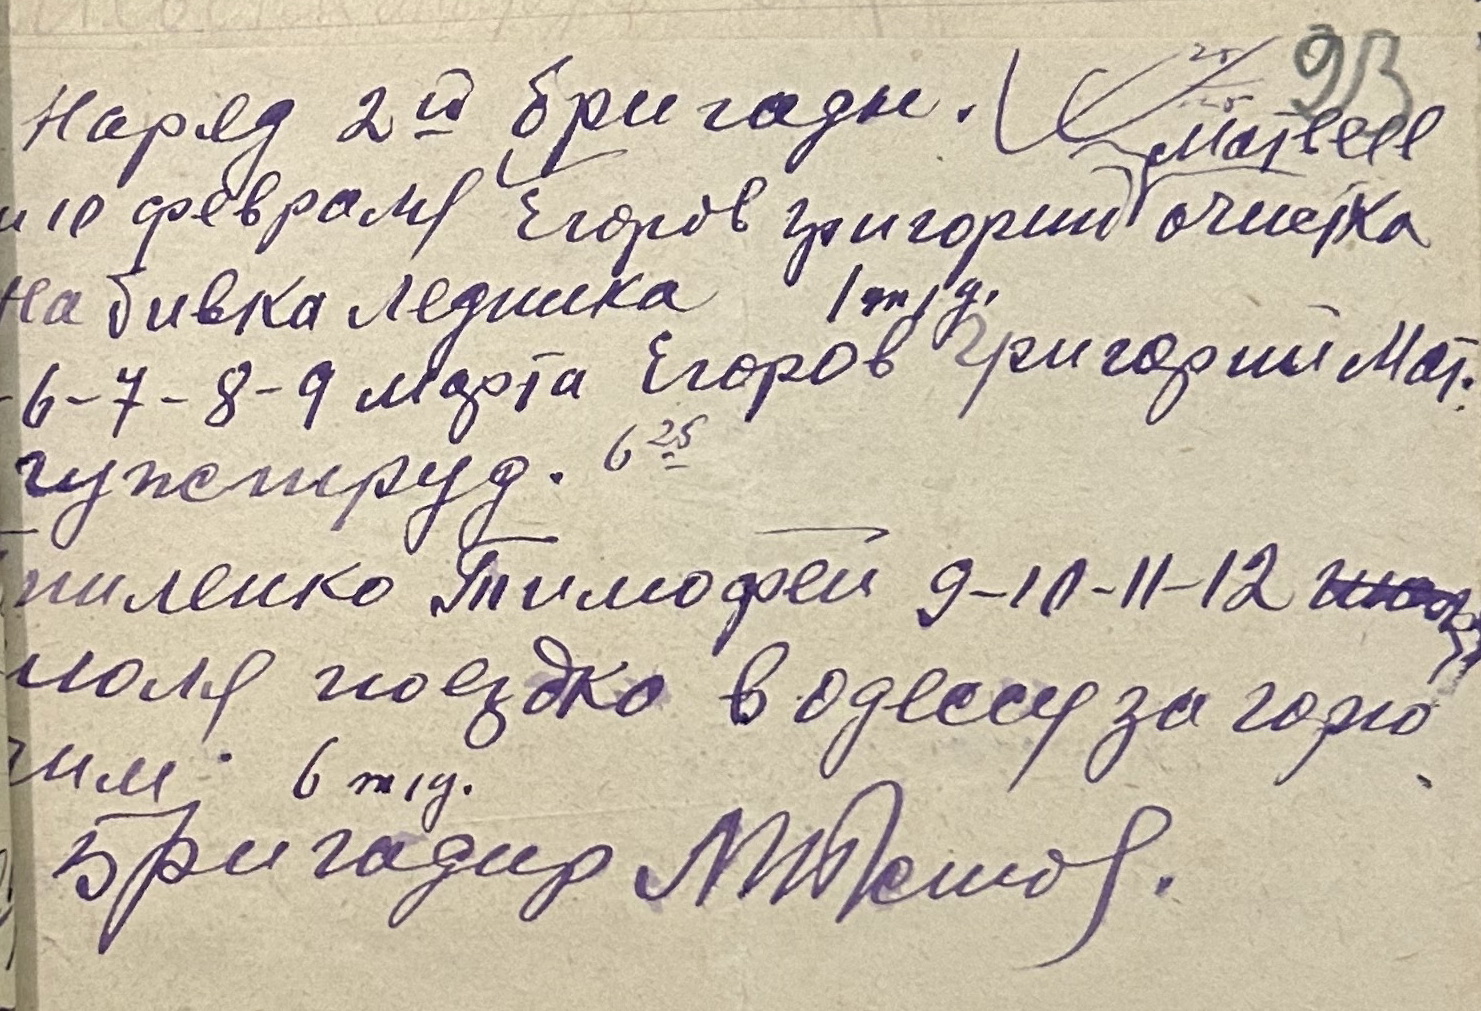 93
Наряд 2й бригады.
Матвееи
и 10 февраля Егоров Григорий очистка
Набивка ледника 1 т/д.
6-7-8-9 марта Егоров Григорий Мат.
гужтруд. 6 25
пиленко Тимофей 9-10-11-12
июля поездка в одессу за горю
чим. 6 т/д.
Бригадир